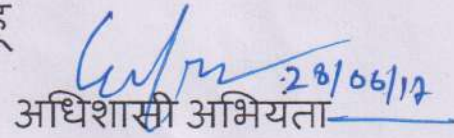 28/06/17
अधिशासी अभियता